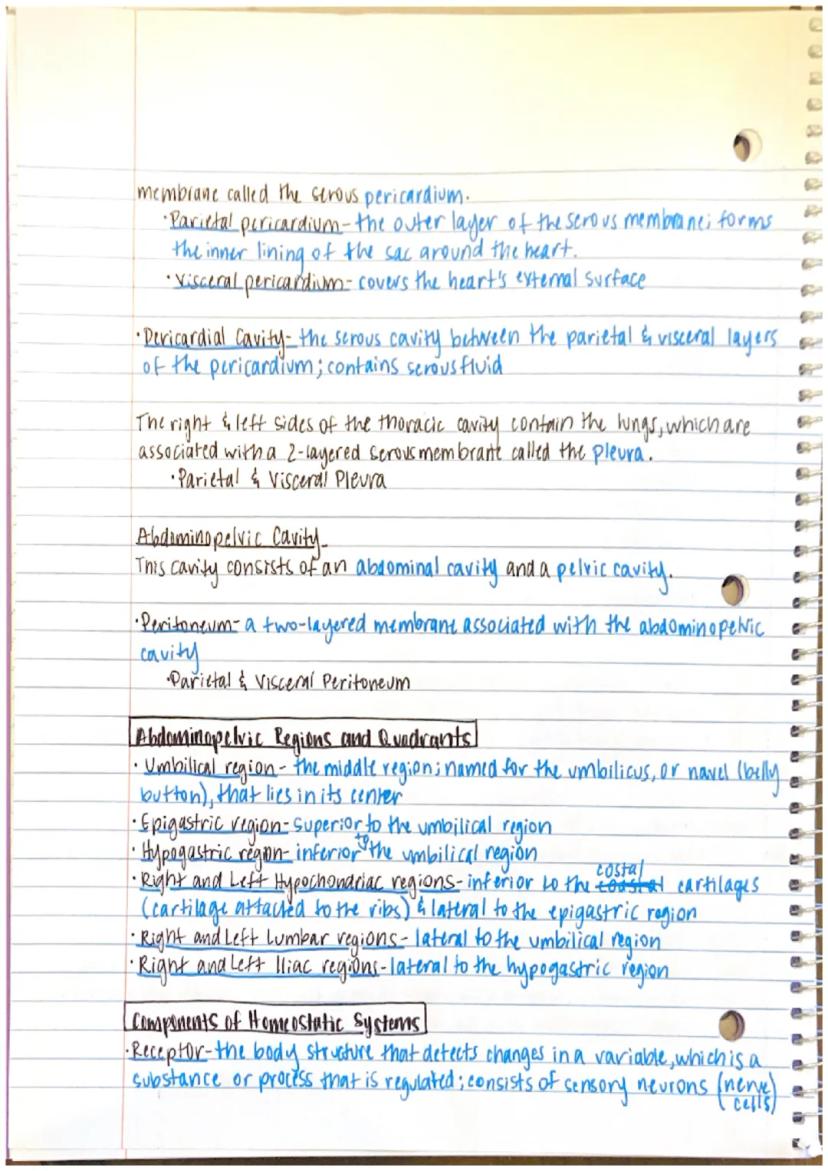 membrane called the serous pericardium.
·Parietal pericardium- the outer layer of the serous membrane; forms
the inner lining of the sac around the heart.
·Visceral pericardium- covers the heart's external surface
·Pericardial Cavity- the serous cavity between the parietal & visceral layers
of the pericardium; contains serous fluid
The right & left sides of the thoracic cavity contain the lungs, which are
associated with a 2-layered serous membrane called the pleura.
·Parietal & Visceral Pleura
Abdominopelvic Cavity
This cavity consists of an abdominal cavity and a pelvic cavity.
·Peritoneum- a two-layered membrane associated with the abdominopelvic
cavity
·Parietal & Visceral Peritoneum
Abdominopelvic Regions and Quadrants
· Umbilical region - the middle region; named for the umbilicus, or navel (belly
button), that lies in its center
· Epigastric region- superior to the umbilical region
· Hypogastric region- inferior to the umbilical region
· Right and Left Hypochondriac regions- inferior to the costal cartilages
(cartilage attached to the ribs) & lateral to the epigastric region
· Right and Left Lumbar regions- lateral to the umbilical region
· Right and Left Iliac regions- lateral to the hypogastric region
Components of Homeostatic Systems
·Receptor- the body structure that detects changes in a variable, which is a
substance or process that is regulated; consists of sensory neurons (nerve
cells)